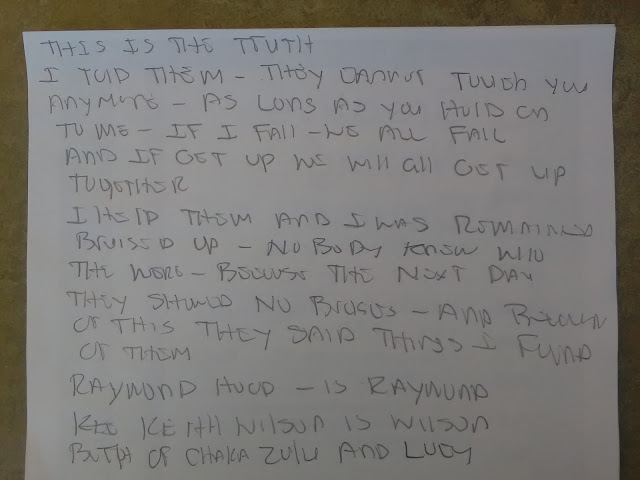 THIS IS THE TTUTH
I TOID THEM - THEY CANNOT TOUCH YOU
ANYMORE - AS LONG AS YOU HOLD ON
TO ME - IF I FAll - WE ALL FAIL
AND IF GET UP WE WIll all GET UP
TOGETHER
I HEID THEM AND I WAS REMAINED
BRUISED UP - NO BODY KNOW WHO
THE WERE - BECAUSE THE NEXT DAY
THEY SHOWED NO BRUSES - AND
OF THIS THEY SAID THINGS I FOUND
OF THEM
RAYMOND HOOD - IS RAYMOND
KEITH WILSON IS WILSON
BOTH OF CHAKA ZULU AND LUCY